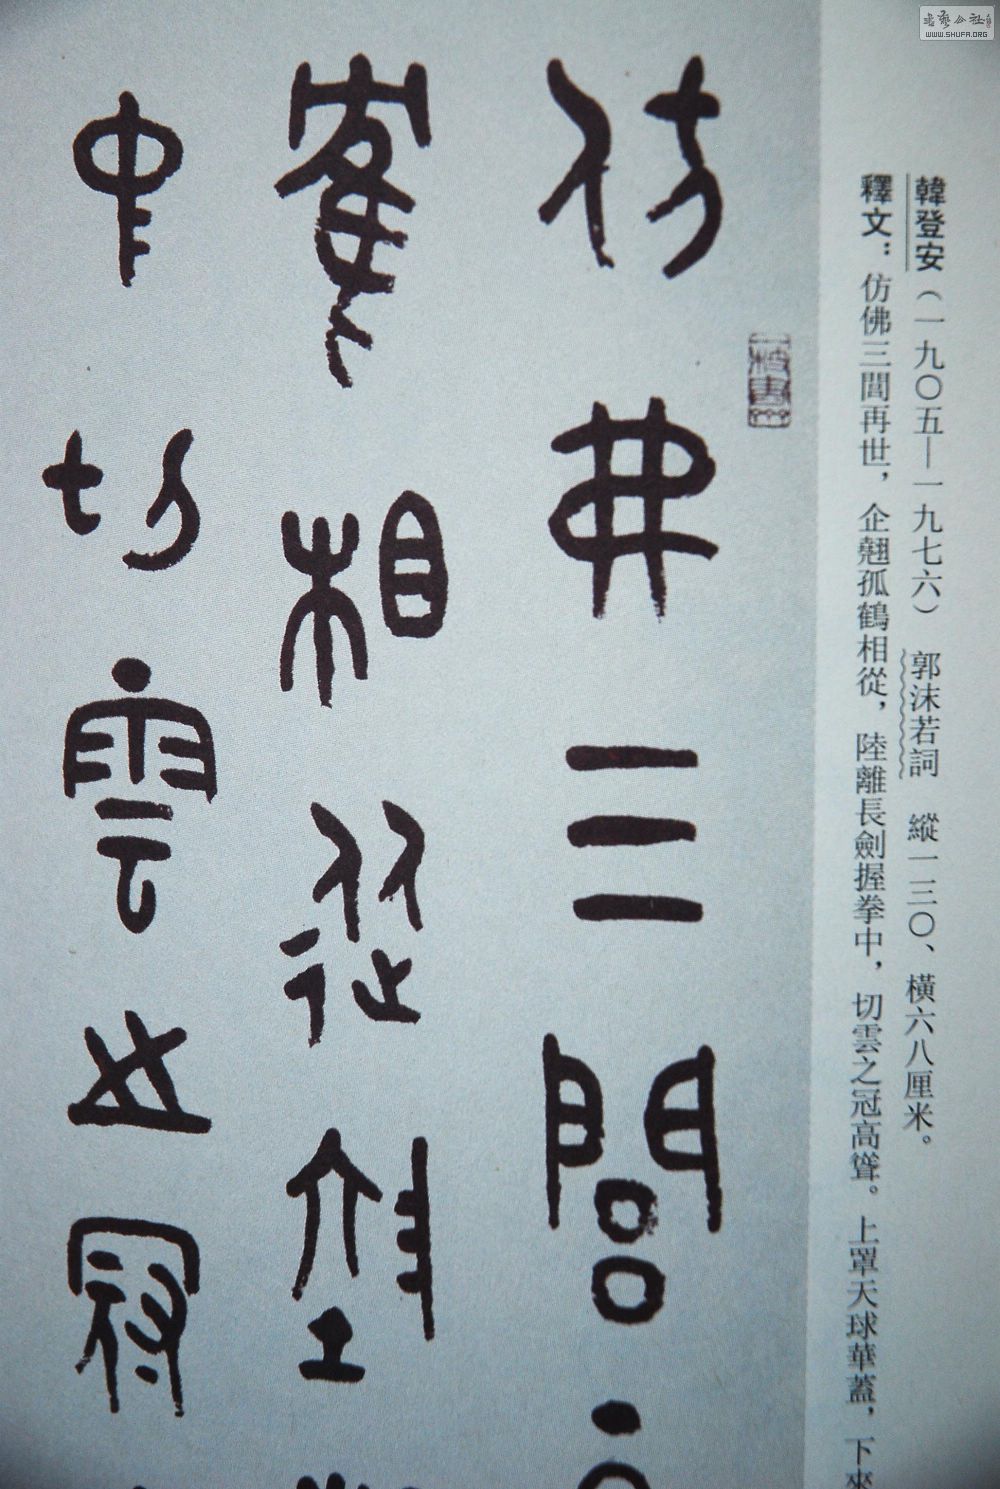 書藝公社
WWW.SHUFA.ORG
韓登安（一九〇五—一九七六）　郭沫若詞　縱一三〇、橫六八厘米。
釋文：仿佛三閭再世，企翹孤鶴相從，陸離長劍握拳中，切雲之冠高聳。上罩天球華蓋，下來
仿弗三閭
鶴相從陸
中切雲之冠